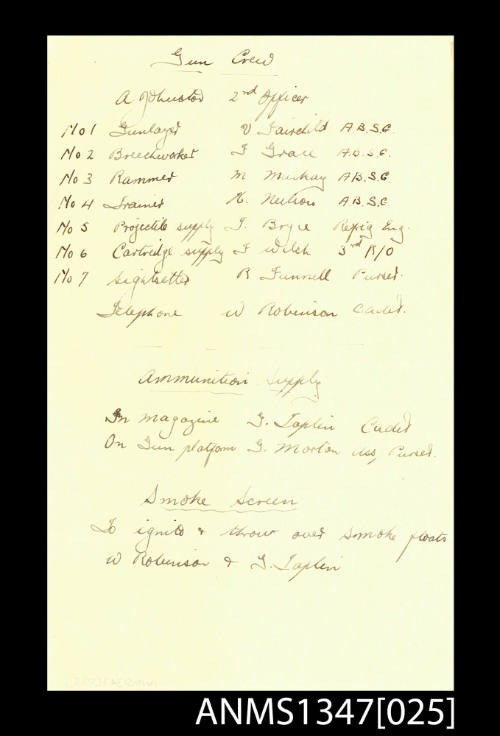 Gun Crew
A Johnston 2nd Officer
No 1 Gunlayer V Fairchild A.B.S.G.
No 2 Breechworker F Grace A.B.S.G.
No 3 Rammer M Mackay A.B.S.G
No 4 Trainer K. Neilson A.B.S.G
No 5 Projectile supply J. Bryce Refrig Eng.
No 6 Cartridge supply F Welch 3rd R/O
No 7 Sightsetter R Funnell Purser.
Telephone W Robinson Cadet.
Ammunition Supply
In magazine G. Taplin Cadet
On Gun platform G. Morton Ass, Purser.
Smoke Screen
To ignite & throw over smoke floats
W Robinson & G. Taplin
ANMS1347[025]